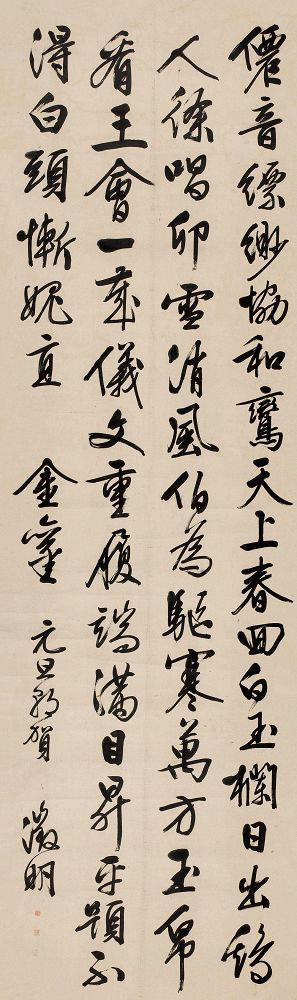 僊音縹緲協和鸞天上春回白玉欄日出鷄
人徐唱卯雪消風伯為驅寒萬方玉帛
看王會一歲儀文重履端滿目昇平題不
得白頭慚愧直 金鑾 元旦朝賀 徵明